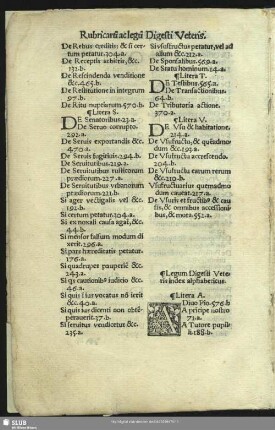 Rubricarũ ac legũ Digesti Veteris.
De Rebus creditis: & si cer
tum petatur.304.a.
De Receptis arbitris, &c.
131.b.
De Rescindenda venditione
&c.465.b.
De Restitutione in integrum
97.b.
De Ritu nuptiarum.570.b.
¶Litera S.
DE Senatoribus.23.a.
De Seruo corrupto.
292.a.
De Seruis exportandis &c.
470.a.
De Seruis fugitiuis.294.b.
De Seruitutibus.219.a.
De Seruitutibus rusticorum
prædiorum.227.a.
De Seruitutibus vrbanorum
prædiorum.221.b.
Si ager vectigalis vel &c.
192.b.
Si certum petatur.304.a.
Si ex noxali causa agat, &c.
44.b.
Si mensor falsum modum di
xerit.296.a.
Si pars hæreditatis petatur.
176.a.
Si quadrupes pauperiẽ &c.
243.a.
Si quis cautionib⁹ iudicio &c.
46.a.
Si quis i ius vocatus nõ ierit
&c.40.a.
Si quis ius dicenti non obtẽ
perauerit.37.b.
Si seruitus vendicetur &c.
235.a.
Si vsufructus petatur, vel ad
alium &c.212.a.
De Sponsalibus.569.a.
De Statu hominum.14.a.
¶Litera T.
DE Testibus.565.a.
De Transactionibus
64.b.
De Tributoria actione.
370.a.
¶Litera V.
DE Vsu & habitatione.
214.a.
De Vsufructu, & quẽadmo
dum &c.194.a.
De Vsufructu accrescendo.
204.b.
De Vsufructu earum rerum
&c.210.b.
Vsufructuarius quemadmo
dum caueat.217.a.
De Vsuris et fructib⁹ & cau
sis, & omnibus accessioni
bus, & mora.551.a.
¶Legum Digesti Vete
ris index alphabeticus.
¶Litera A.
A Diuo Pio.576.b
A principe nostro
71.a.
A Tutore pupil
li.188.b.